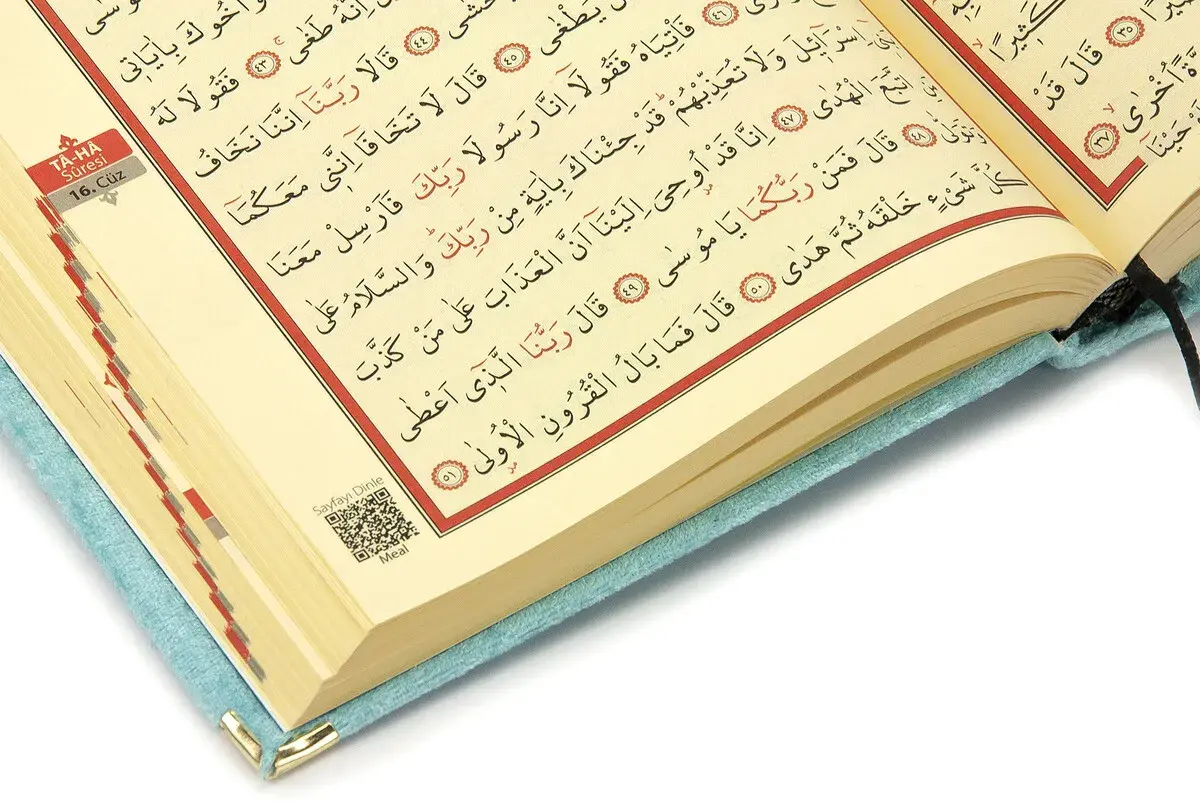 كَثٖيرًا
﴿٣٥﴾ قَالَ قَدْ
اُخْرٰى ﴿٣٧﴾
مُوسٰى
وَاَخُوكَ بِاٰيَاتٖى
اِنَّهُ طَغٰى ﴿٤٣﴾ فَقُولَا لَهُ
يَخْشٰى ﴿٤٤﴾ قَالَا رَبَّنَٓا اِنَّنَا نَخَافُ
يَطْغٰى ﴿٤٥﴾ قَالَ لَا تَخَافَٓا اِنَّنٖى مَعَكُمَٓا
﴿٤٦﴾ فَأْتِيَاهُ فَقُولَٓا اِنَّا رَسُولَا رَبِّكَ فَاَرْسِلْ مَعَنَا
بَنٖٓى اِسْرَٓائٖلَ وَلَا تُعَذِّبْهُمْ قَدْ جِئْنَاكَ بِاٰيَةٍ مِنْ رَبِّكَ وَالسَّلَامُ عَلٰى
اتَّبَعَ الْهُدٰى ﴿٤٧﴾ اِنَّا قَدْ اُوحِىَ اِلَيْنَٓا اَنَّ الْعَذَابَ عَلٰى مَنْ كَذَّبَ
وَتَوَلّٰى ﴿٤٨﴾ قَالَ فَمَنْ رَبُّكُمَا يَا مُوسٰى ﴿٤٩﴾ قَالَ رَبُّنَا الَّذٖٓى اَعْطٰى
كُلَّ شَىْءٍ خَلْقَهُ ثُمَّ هَدٰى ﴿٥٠﴾ قَالَ فَمَا بَالُ الْقُرُونِ الْاُولٰى ﴿٥١﴾
TÂ-HÂ
Sûresi
16. Cüz
Sayfayı Dinle
Meal